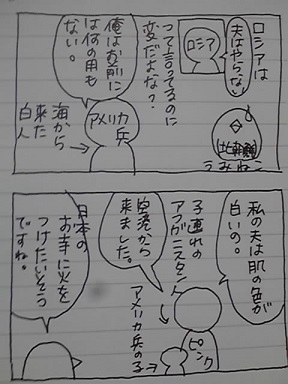 ロシアは
夫はやらない
ロシア
北朝鮮
うみねこ
って言ってるのに
変だよな?
俺はお前に
は何の用も
ない。
アメリカ兵
海から
来た
白人
私の夫は肌の色が
白いの。
子連れの
アフガニスタン
空港から
来ました。
ピンク
アメリカ兵の子
日本の
お寺に火を
つけたいそう
ですね。